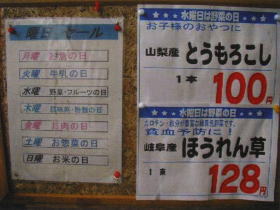 曜日セール
月曜 お酒の日
火曜 牛乳の日
水曜 野菜・フルーツの日
木曜 の日
金曜 お肉の日
土曜 お惣菜の日
日曜 お米の日
水曜日は野菜の日
お子様のおやつに
山梨産 とうもろこし
1本 100円
水曜日は野菜の日
貧血予防に!
岐阜産 ほうれん草
1束 128円